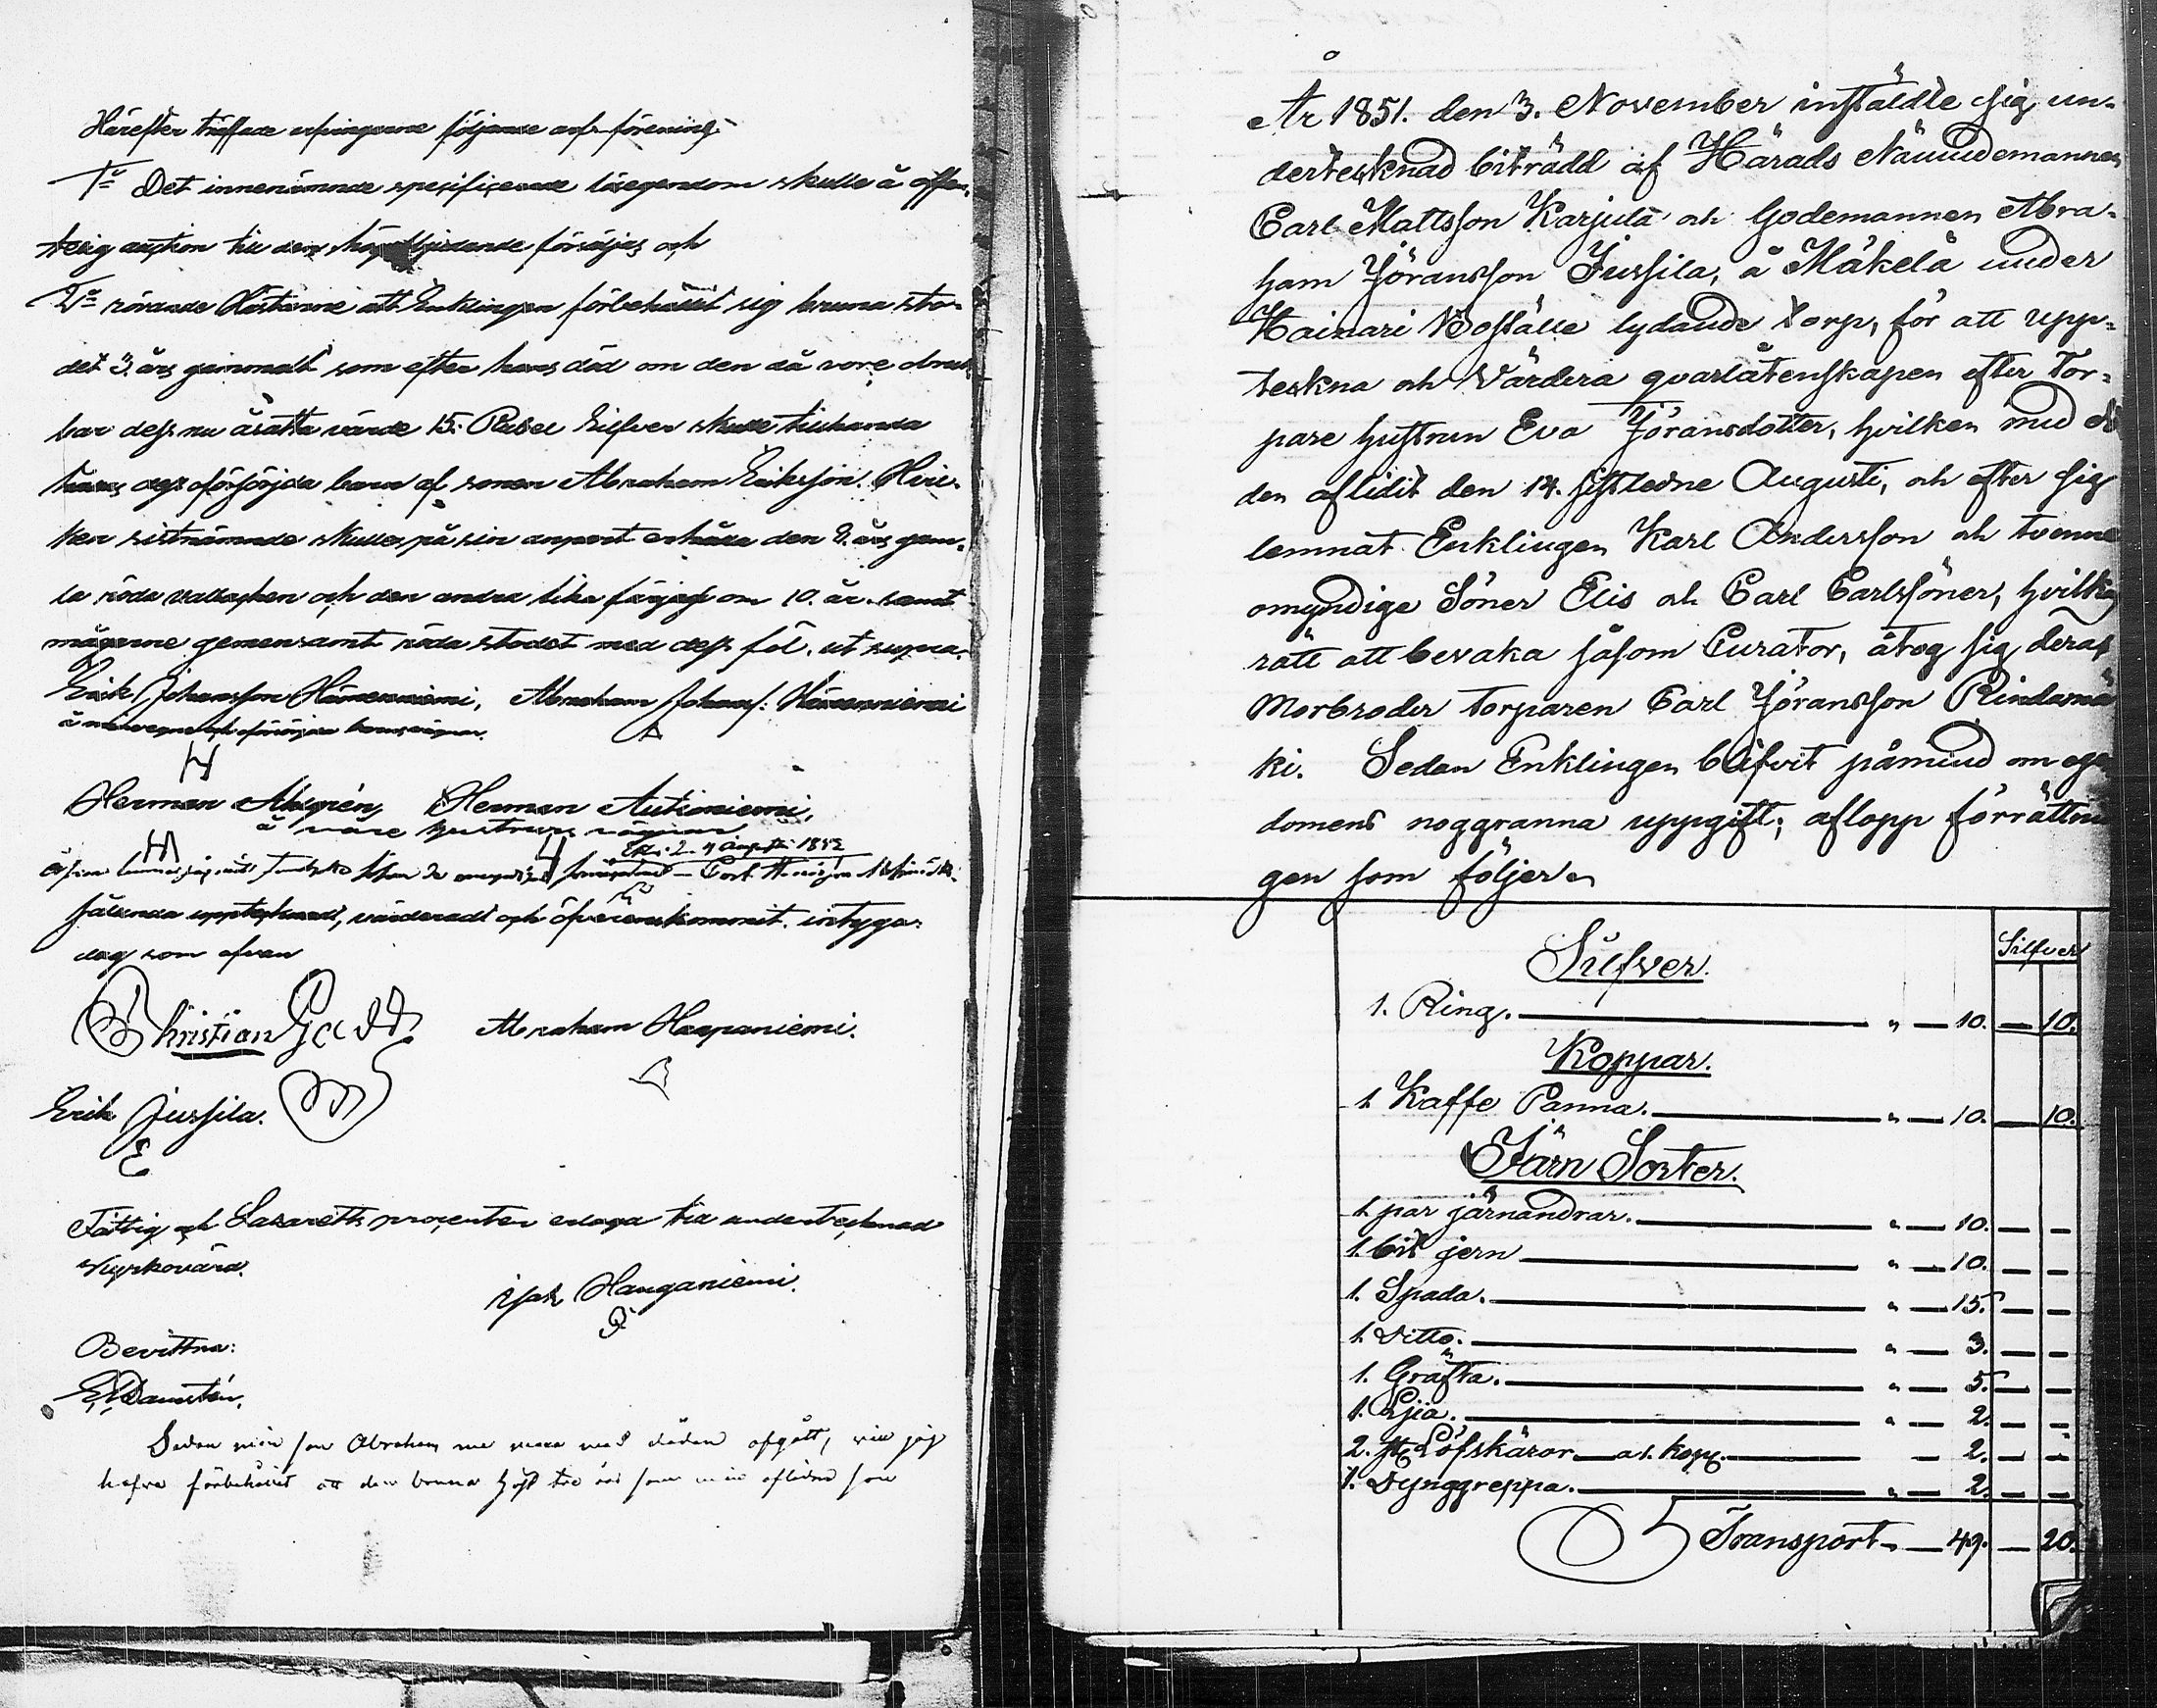 Härefter träffade arfvingarne följande arfs förening
1o Det innenämnde spesifiçerade lösegendom skulle å offen-
telig auçtion till den högstbjudande försäljas och
2o rörande Hästarne att Enklingen förbehållit sig bruna sto-
det 3. års gammalt som efter hans död om den då vore obruk-
bar dess nu åsatta värde 15. Rubel Silfver skulle tillhanda
hans oförsörjda barn af sonen Abraham Eriksson. Hvil-
ken sistnämnde skulle på sin anpart erhålla den 8. års gam-
la röda vallachen och den andra lika färgad om 10. år samt
mågarne gemensamt röda stodet med dess föl. ut supra.
Erik Johansson Hämenniemi, Abraham Johanss: Hämenniemi
å mina egna och oförsörjda barns vägnar.
Herman Ahlgrén, Herman Antinniemi,
å våre hustrurs vägnar
2. 4 Augusti 1852
Sålunda upptecknadt, värderadt och öfverenskommit. intyga.
dag som ofvan
Christian Gadd Abraham Haapaniemi.
Erik Jussila.
E
Fattig och Lazaretts proçenter erlagda till undertecknad
Kyrkovärd.
Isak Hanganiemi.
Bevittna:
Sedan min son Abraham nu mera med döden afgått, vill jag
hafva förbehållit att den bruna häst tre års som min aflidne son
År 1851. den 3. November inställde sig un-
dertecknad biträdd af Härads Nämndemannen
Carl Mattsson Karjula och Godemannen Abra-
ham Jöransson Jussila, å Mäkelä under
Kainari Boställe lydande torp, för att upp-
teckna och Värdera qvarlåtenskapen efter Tor-
pare hustrun Eva Jöransdotter, hvilken med dö
den aflidit den 14. sistledne Augusti, och efter sig
lemnat Enklingen Karl Andersson och tvenne
omyndige Söner Elis och Carl Carlssöner, hvilkas
rätt att bevaka såsom Curator, åtog sig deras
Morbroder torparen Carl Jöransson Rindamä
ki. Sedan Enklingen blifvit påmind om egen
domens noggranna uppgift; aflopp förrättnin
gen som följer
Silfver
Silfver.
1. Ring. " — 10. — 10.
Koppar.
1. Kaffe Panna. " — 10. — 10.
Järn Sorter.
1. par järnändrar. " — 10. — —
1. bit jern " — 10. — —
1. Spada. " — 15. — —
1. Ditto. " — 3. — —
1. Gräfta. " — 5. — —
1. Ljia. " — 2. — —
2. st. Löfskäror — a 1. kop. — 2. — —
1. Dynggreppa. " — 2. — —
Transport — 49. — 20.